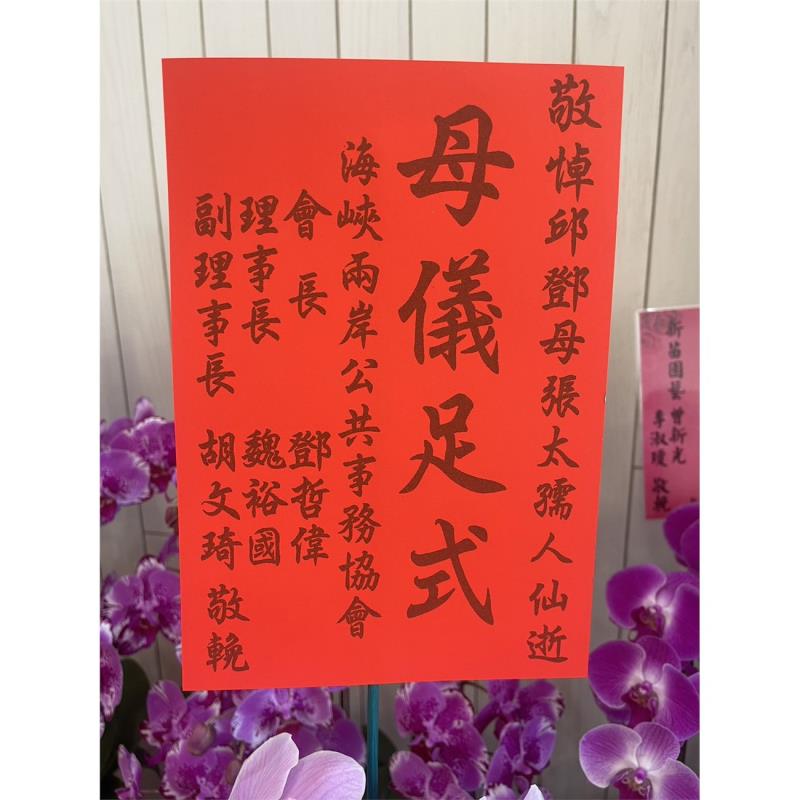 敬悼邱鄧母張太孺人仙逝
母儀足式
海峽兩岸公共事務協會
會長 鄧哲偉
理事長 魏裕國
副理事長 胡文琦 敬輓
新苗園藝 曾新光
李淑瓊 敬輓